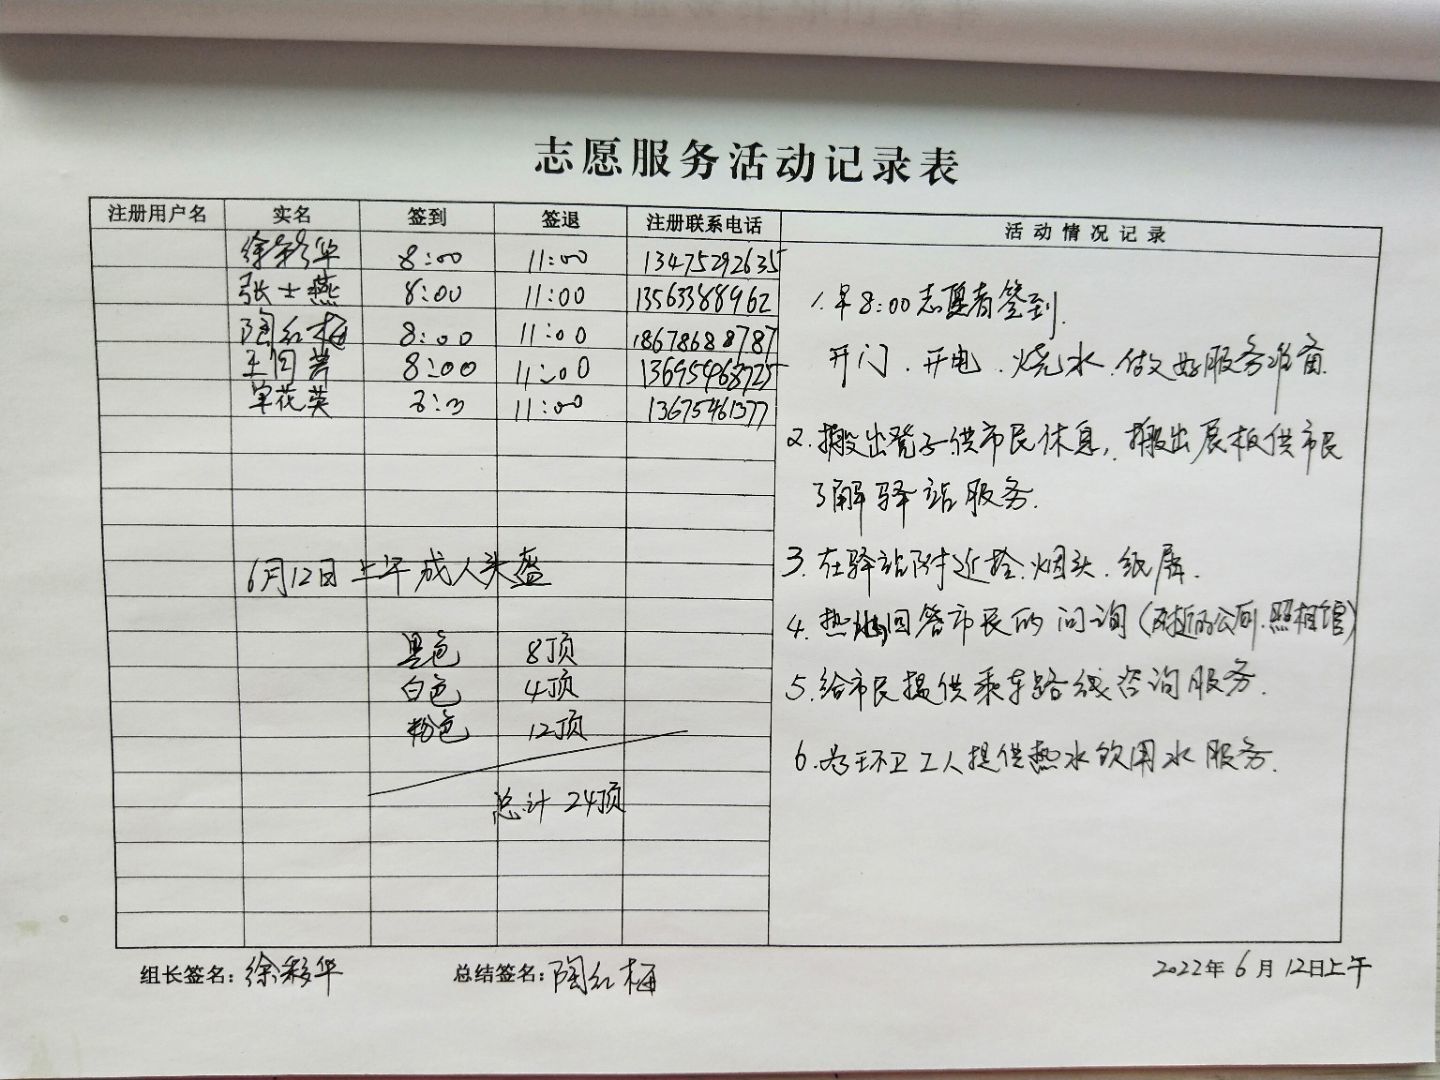 志愿服务活动记录表
注册用户名 实名 签到 签退 注册联系电话 活动情况记录
徐彩华 8:00 11:00 13475292635
张士燕 8:00 11:00 13563388962
陶红梅 8:00 11:00 18678688787
8:00 11:00 13695468725
单花英 11:00 13675461377
6月12日上午成人头盔
黑色 8顶
白色 4顶
粉色 12顶
总计 24顶
1.早8:00志愿者签到.
开门.开电.烧水.做好服务准备.
2.搬出凳子供市民休息,搬出展板供市民
了解驿站服务.
3.在驿站附近捡烟头.纸屑.
4.热心回答市民的问询(附近的公厕.照相馆)
5.给市民提供乘车路线咨询服务.
6.为环卫工人提供热水饮用水服务.
组长签名:徐彩华 总结签名:陶红梅 2022年6月12日上午